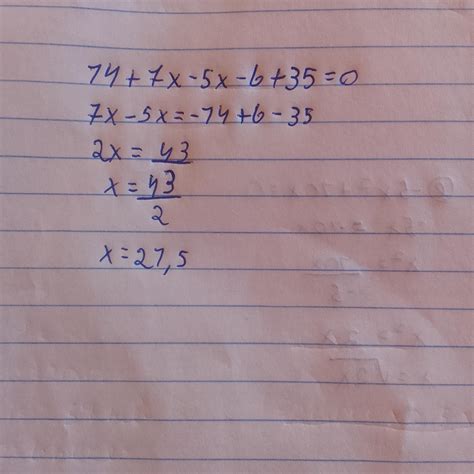 14+7x-5x-6+35=0
7x-5x=-14+6-35
2x=43
x=43
2
x=21,5